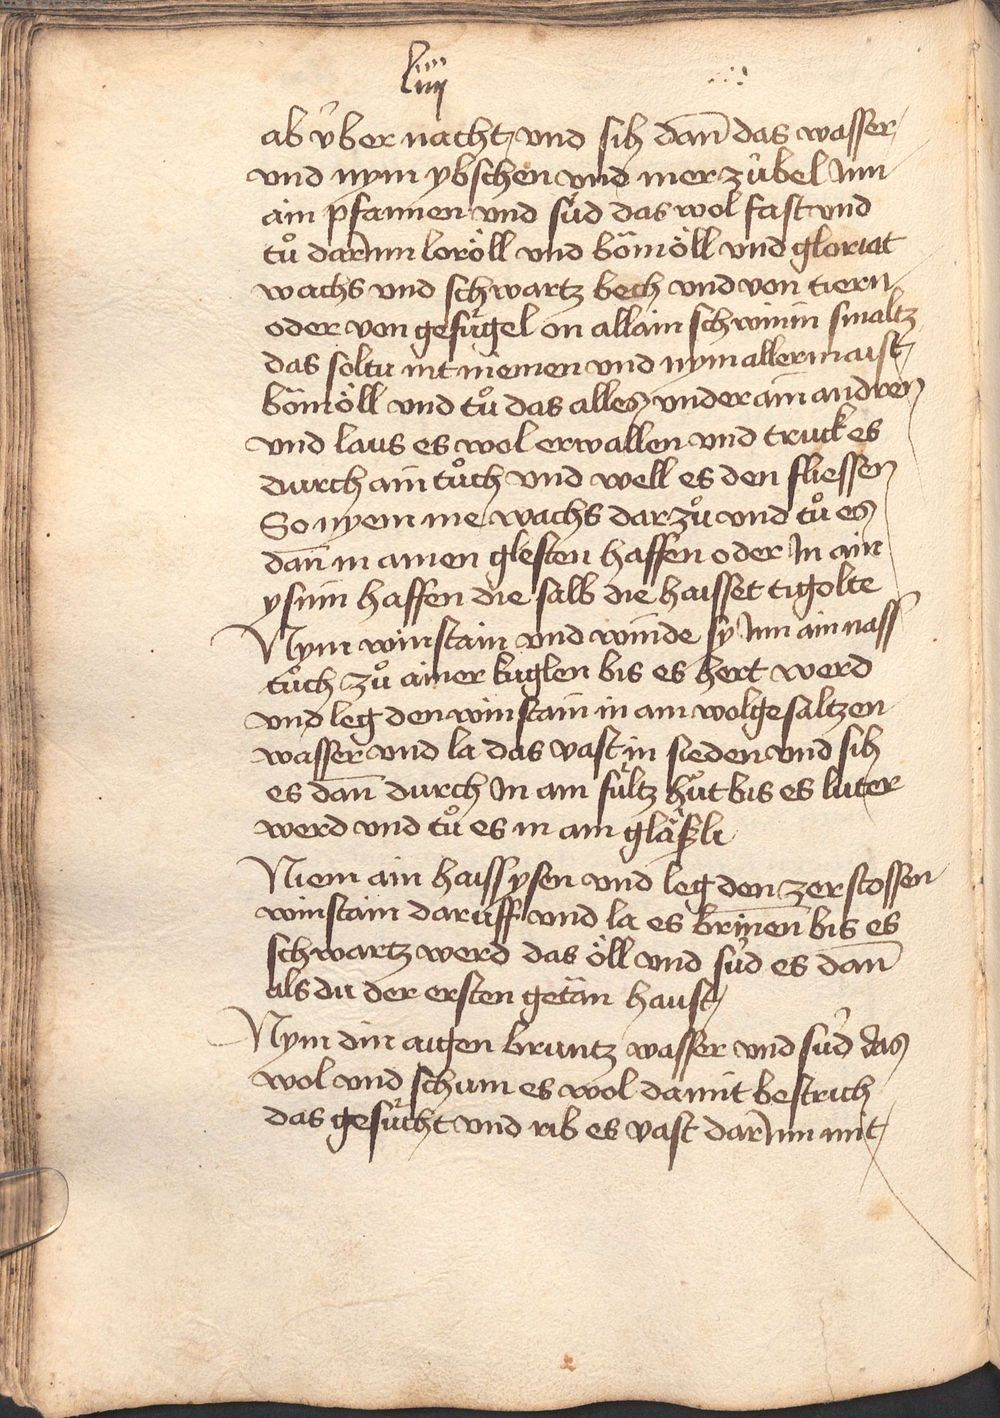 liiij
ab v́ber nacht und sih dan̄ das wasser
vnd nym ybschen vnd merzúbel Inn
ain pfannen vnd súd das wol fast vnd
tů darInn loröll vnd bömöll vnd gloriat
wachs vnd schwartz bech vnd von tiern
oder von gefúgel on allain schwinin smaltz
das soltu nit niemen vnd nym aller maist
bömöll vnd tů das alles vnder ain andren
vnd laus es wol erwallen vnd truck es
durch ain tůch vnd well es den fliessen
So nyem me wachs dar zů vnd tů es
dan̄ in ainen glesten haffen oder In ain
ysnin haffen die salb die haisset tigolte
Nym winstain vnd winde sy Inn ain nass
tůch zů ainer kuglen bis es hert werd
vnd leg den winstain in ain wol gesaltzen
wasser vnd la das vast in sieden vnd sih
es dan̄ durch In ain fúltz hůt bis es luter
werd vnd tů es in ain gläßli
Niem ain haiss ysen vnd leg den zerstossen
winstain daruff vnd la es brinen̄ bis es
schwartz werd das öll vnd súd es dan̄
als du der ersten getän haust
Nym din aigen bruntz wasser vnd súd das
wol vnd schum es wol da mit bestrich
das gesúcht vnd rib es vast darInn mit